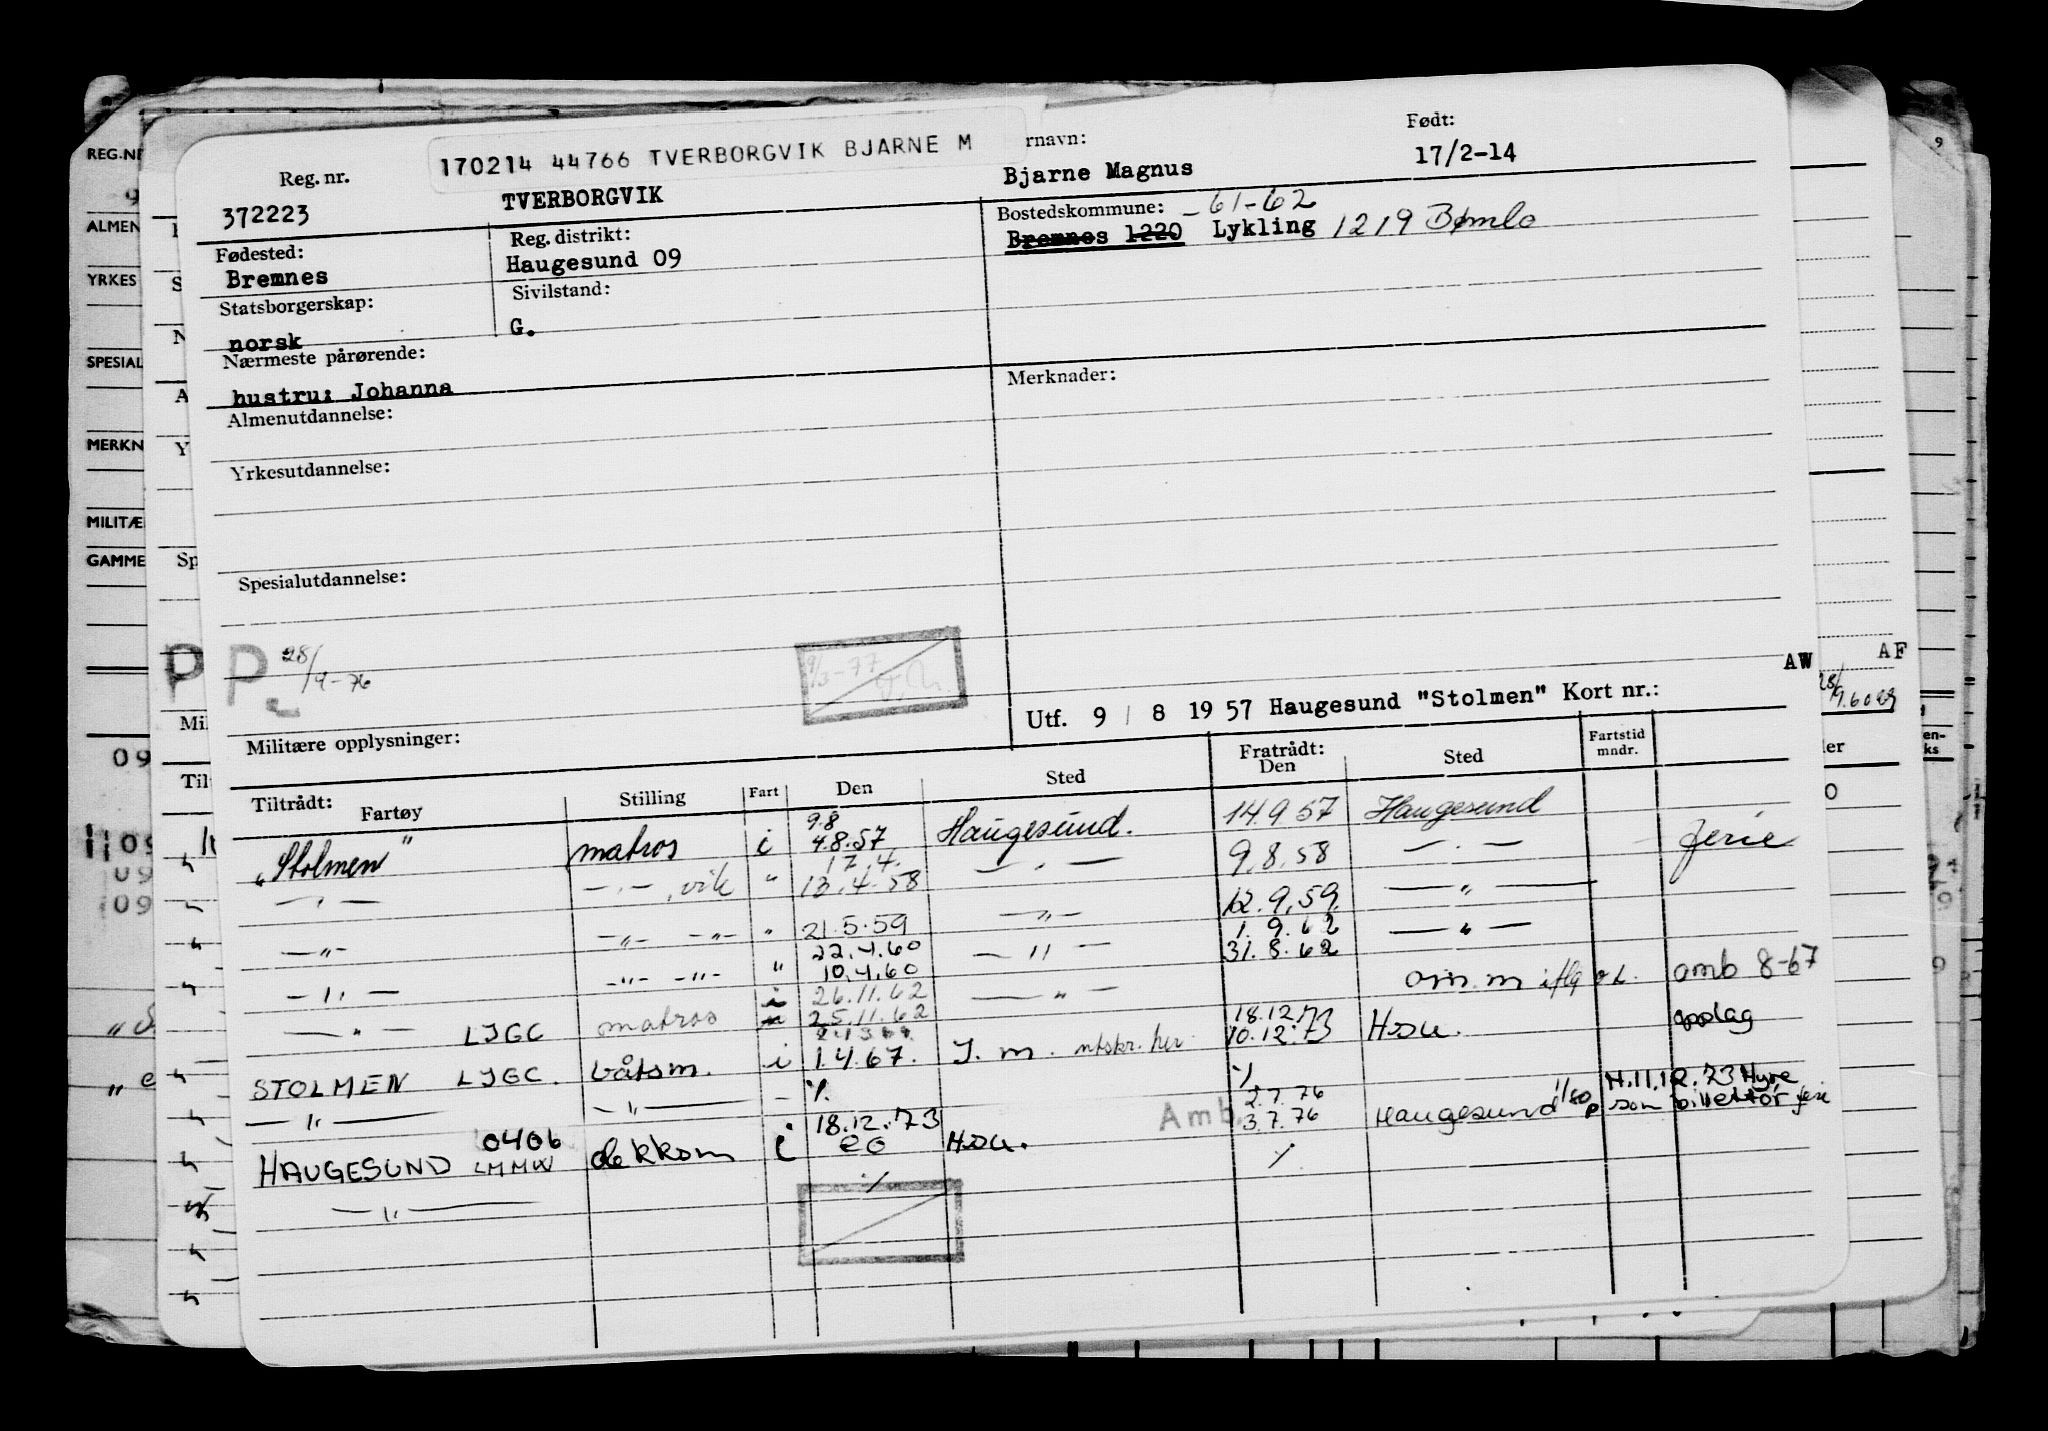 170214 44766 TVERBORGVIK BJARNE M
Reg. nr.
372223
TVERBORGVIK
rnavn:
Bjarne Magnus
Født:
17/2-14
Fødested:
Bremnes
Reg. distrikt:
Haugesund 09
Bostedskommune: -61-62
Bremnes 1220 Lykling 1219 Bømlo
Statsborgerskap:
norsk
Sivilstand:
G.
Nærmeste pårørende:
hustru: Johanna
Merknader:
Almenutdannelse:
Yrkesutdannelse:
Spesialutdannelse:
P 28/9-76
9/3-77
AW
AF
Utf. 9 / 8 19 57 Haugesund "Stolmen" Kort nr.:
Militære opplysninger:
Tiltrådt: Fartøy Stilling Fart Den Sted Fratrådt: Den Sted Fartstid mndr.
9.8
"Stolmen" matros i 4.8.57 Haugesund. 14.9 57 Haugesund
17.4.
— " — — " —, vik " 13.4.58 — " — 9.8.58 — " — ferie
— " — — " — — " — " 21.5.59 — " — 12.9.59 — " —
22.4.60 1.9.62
— " — — " — — " — " 10.4.60 — " — 31.8.62 — " —
26.11.62
— " — LJGC matros 25.11.62 — " — om.m iflg amb 8-67
18.12.73
STOLMEN LJGC. båtsm. i 1.4.67. J. m. utskr. her 10.12.73 Hsu. opslag
— " — — " — — % %
18.12.73 2.7.76 M.11.12.73 Hyre
HAUGESUND 0406 LMMW dekksm i eo Hsu. Amb. 3.7.76 Haugesund som billettør
— " — % %
REG.NR
ALMEN
YRKES
SPESIAL
MERKN
MILITÆ
GAMME